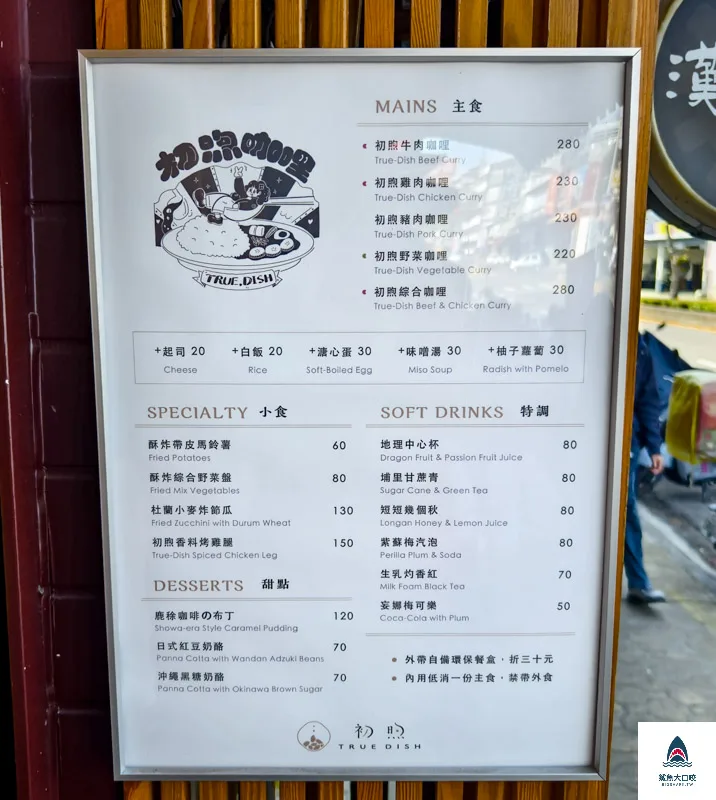 漢
初煦咖哩
TRUE.DISH
MAINS 主食
初煦牛肉咖哩 280
True-Dish Beef Curry
初煦雞肉咖哩 230
True-Dish Chicken Curry
初煦豬肉咖哩 230
True-Dish Pork Curry
初煦野菜咖哩 220
True-Dish Vegetable Curry
初煦綜合咖哩 280
True-Dish Beef & Chicken Curry
+起司 20 +白飯 20 +溏心蛋 30 +味噌湯 30 +柚子蘿蔔 30
Cheese Rice Soft-Boiled Egg Miso Soup Radish with Pomelo
SPECIALTY 小食
酥炸帶皮馬鈴薯 60
Fried Potatoes
酥炸綜合野菜盤 80
Fried Mix Vegetables
杜蘭小麥炸節瓜 130
Fried Zucchini with Durum Wheat
初煦香料烤雞腿 150
True-Dish Spiced Chicken Leg
DESSERTS 甜點
鹿徐咖啡の布丁 120
Showa-era Style Caramel Pudding
日式紅豆奶酪 70
Panna Cotta with Wandan Adzuki Beans
沖繩黑糖奶酪 70
Panna Cotta with Okinawa Brown Sugar
SOFT DRINKS 特調
地理中心杯 80
Dragon Fruit & Passion Fruit Juice
埔里甘蔗青 80
Sugar Cane & Green Tea
短短幾個秋 80
Longan Honey & Lemon Juice
紫蘇梅汽泡 80
Perilla Plum & Soda
生乳灼香紅 70
Milk Foam Black Tea
妄娜梅可樂 50
Coca-Cola with Plum
外帶自備環保餐盒・折三十元
內用低消一份主食・禁帶外食
初煦
TRUE DISH
鯊魚大口咬
BIGSHARK.TW